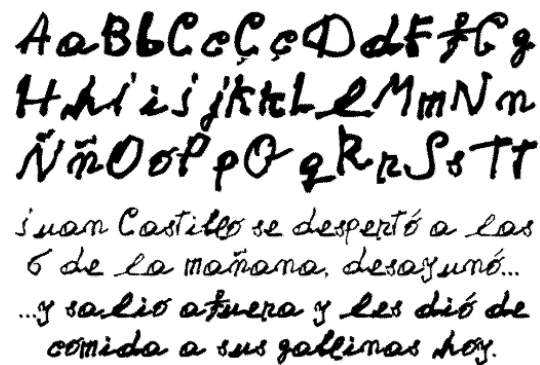 AaBbCcÇçDdFfGg
HhIiJjKkLlMmNn
ÑñOoPpQqRrSsTt
juan Castillo se despertó a las
6 de la mañana, desayunó...
...y salió afuera y les dió de
comida a sus gallinas hoy.